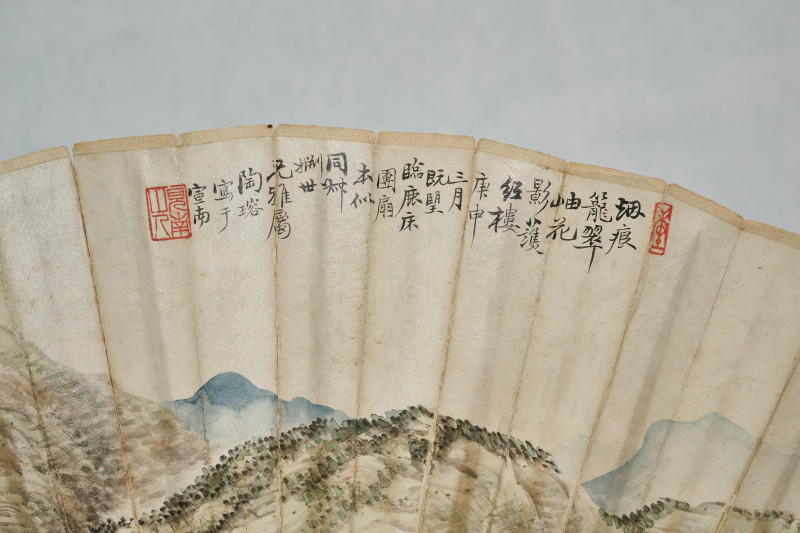 烟痕
籠翠
岫花
影護
紅樓
庚申
三月
既望
臨鹿床
團扇
本似
同叔
世
兄雅屬
陶瑢
寫于
宣南